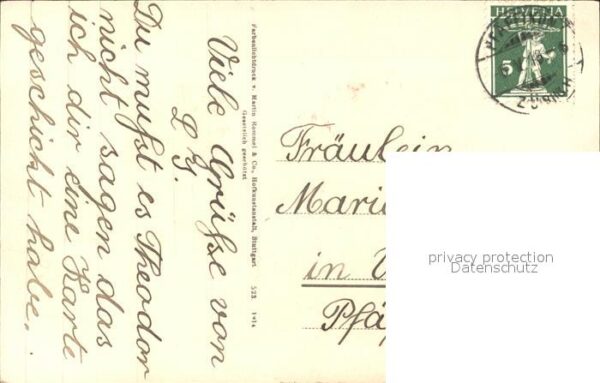 Du mußt es Theodor
nicht sagen das
ich dir eine Karte
geschickt habe.
Viele Grüße von
L G.
Farbenlichtdruck v. Martin Rommel & Co., Hofkunstanstalt, Stuttgart.
Gesetzlich geschützt
523 1914
HELVETIA
5
ZÜRICH
Fräulein
Marie
in
Pfä
privacy protection
Datenschutz